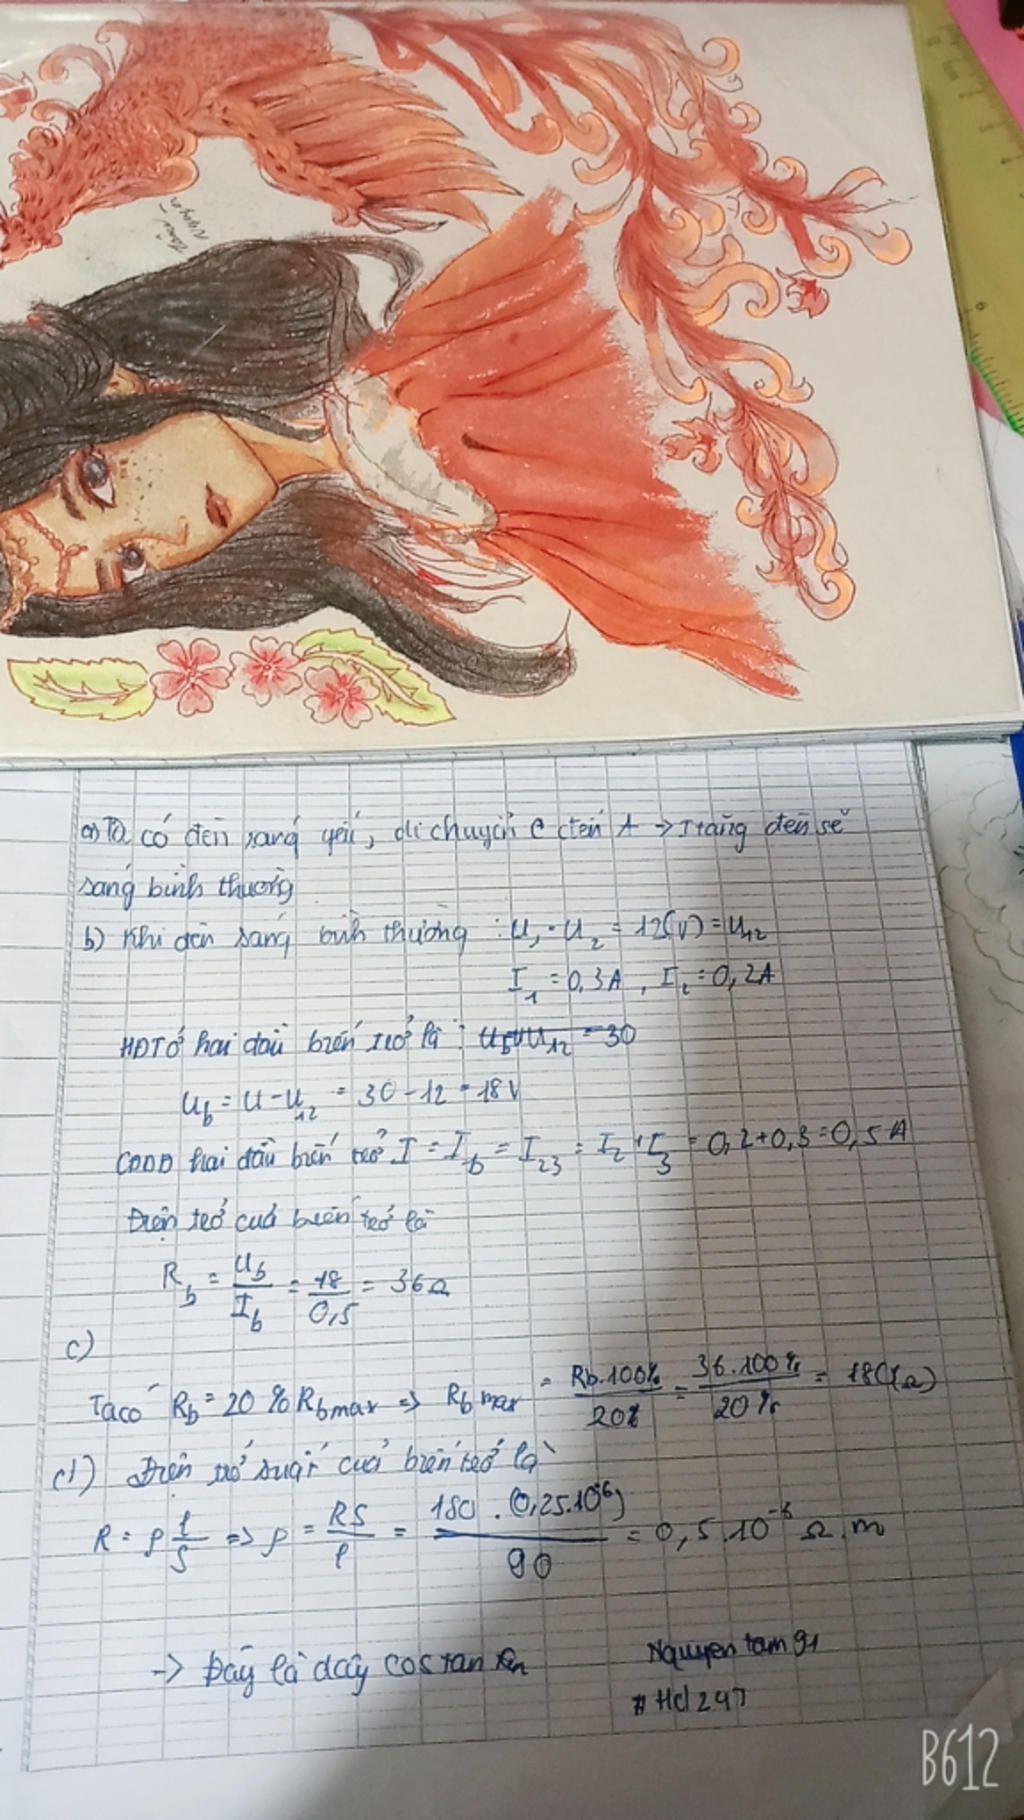 a) Ta có đèn sáng yếu, di chuyển C đến A → I tăng đèn sẽ
sáng bình thường
b) Khi đèn sáng bình thường : U₁ = U₂ = 12(V) = U₁₂
I₁ = 0,3A , I₂ = 0,2A
HĐT ở hai đầu biến trở là : U₁₂ = 30
U_b = U - U₁₂ = 30 - 12 = 18V
CĐDĐ hai đầu biến trở I = I_b = I₂₃ = I₂ + I₃ = 0,2 + 0,3 = 0,5A
Điện trở của biến trở là
R_b = U_b / I_b = 18 / 0,5 = 36Ω
c)
Ta có R_b = 20% R_b max => R_b max = R_b.100% / 20% = 36.100% / 20% = 180(Ω)
d) Điện trở suất của biến trở là
R = ρ l/S => ρ = RS / l = 180 . (0,25.10⁻⁶) / 90 = 0,5.10⁻⁶ Ω.m
→ Đây là dây costantan
Nguyen tam
B612